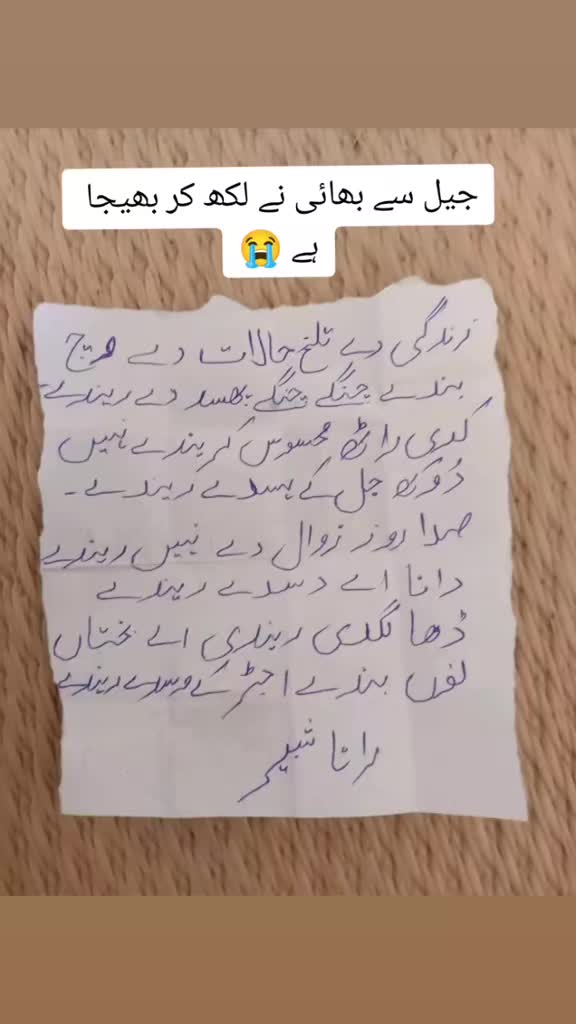 جیل سے بھائی نے لکھ کر بھیجا
ہے 😭
زندگی دے تلخ حالات دے وچ
بندے چنگے چنگے پھسدے ریندے
کدی راٹھ محسوس کریندے نہیں
ڈوکھ جل کے ہسدے ریندے۔
صدا روز زوال دے نہیں ریندے
دانا اے دسدے ریندے
ڈھا لگدی ریندی اے بختاں
لوں بندے اجڑ کے وسدے ریندے
رانا شبیر